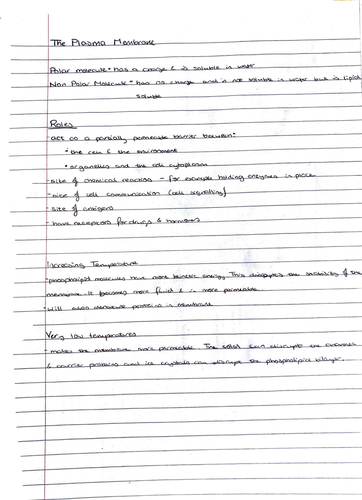 The Plasma Membrane
Polar molecule • has a charge & is soluble in water
Non Polar Molecule • has no charge and is not soluble in water but is lipid
soluble
Roles
- act as a partially permeable barrier between:
• the cell & the environment
• organelles and the cell cytoplasm
- site of chemical reactions - for example holding enzymes in place
- site of cell communication (cell signalling)
- site of antigens
- have receptors for drugs & hormones
Increasing Temperature
- phospholipid molecules have more kinetic energy. This disrupts the stability of the
membrane. It becomes more fluid & is more permeable
- will also denature proteins in membrane
Very low temperatures
- makes the membrane more permeable. The disrupts the channel
& carrier proteins and ice crystals can disrupt the phospholipid bilayer.